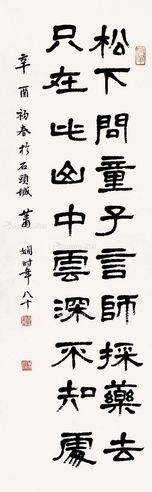 松下問童子言師採藥去
只在此山中雲深不知處
辛酉初春於石頭城 蕭嫻時年八十